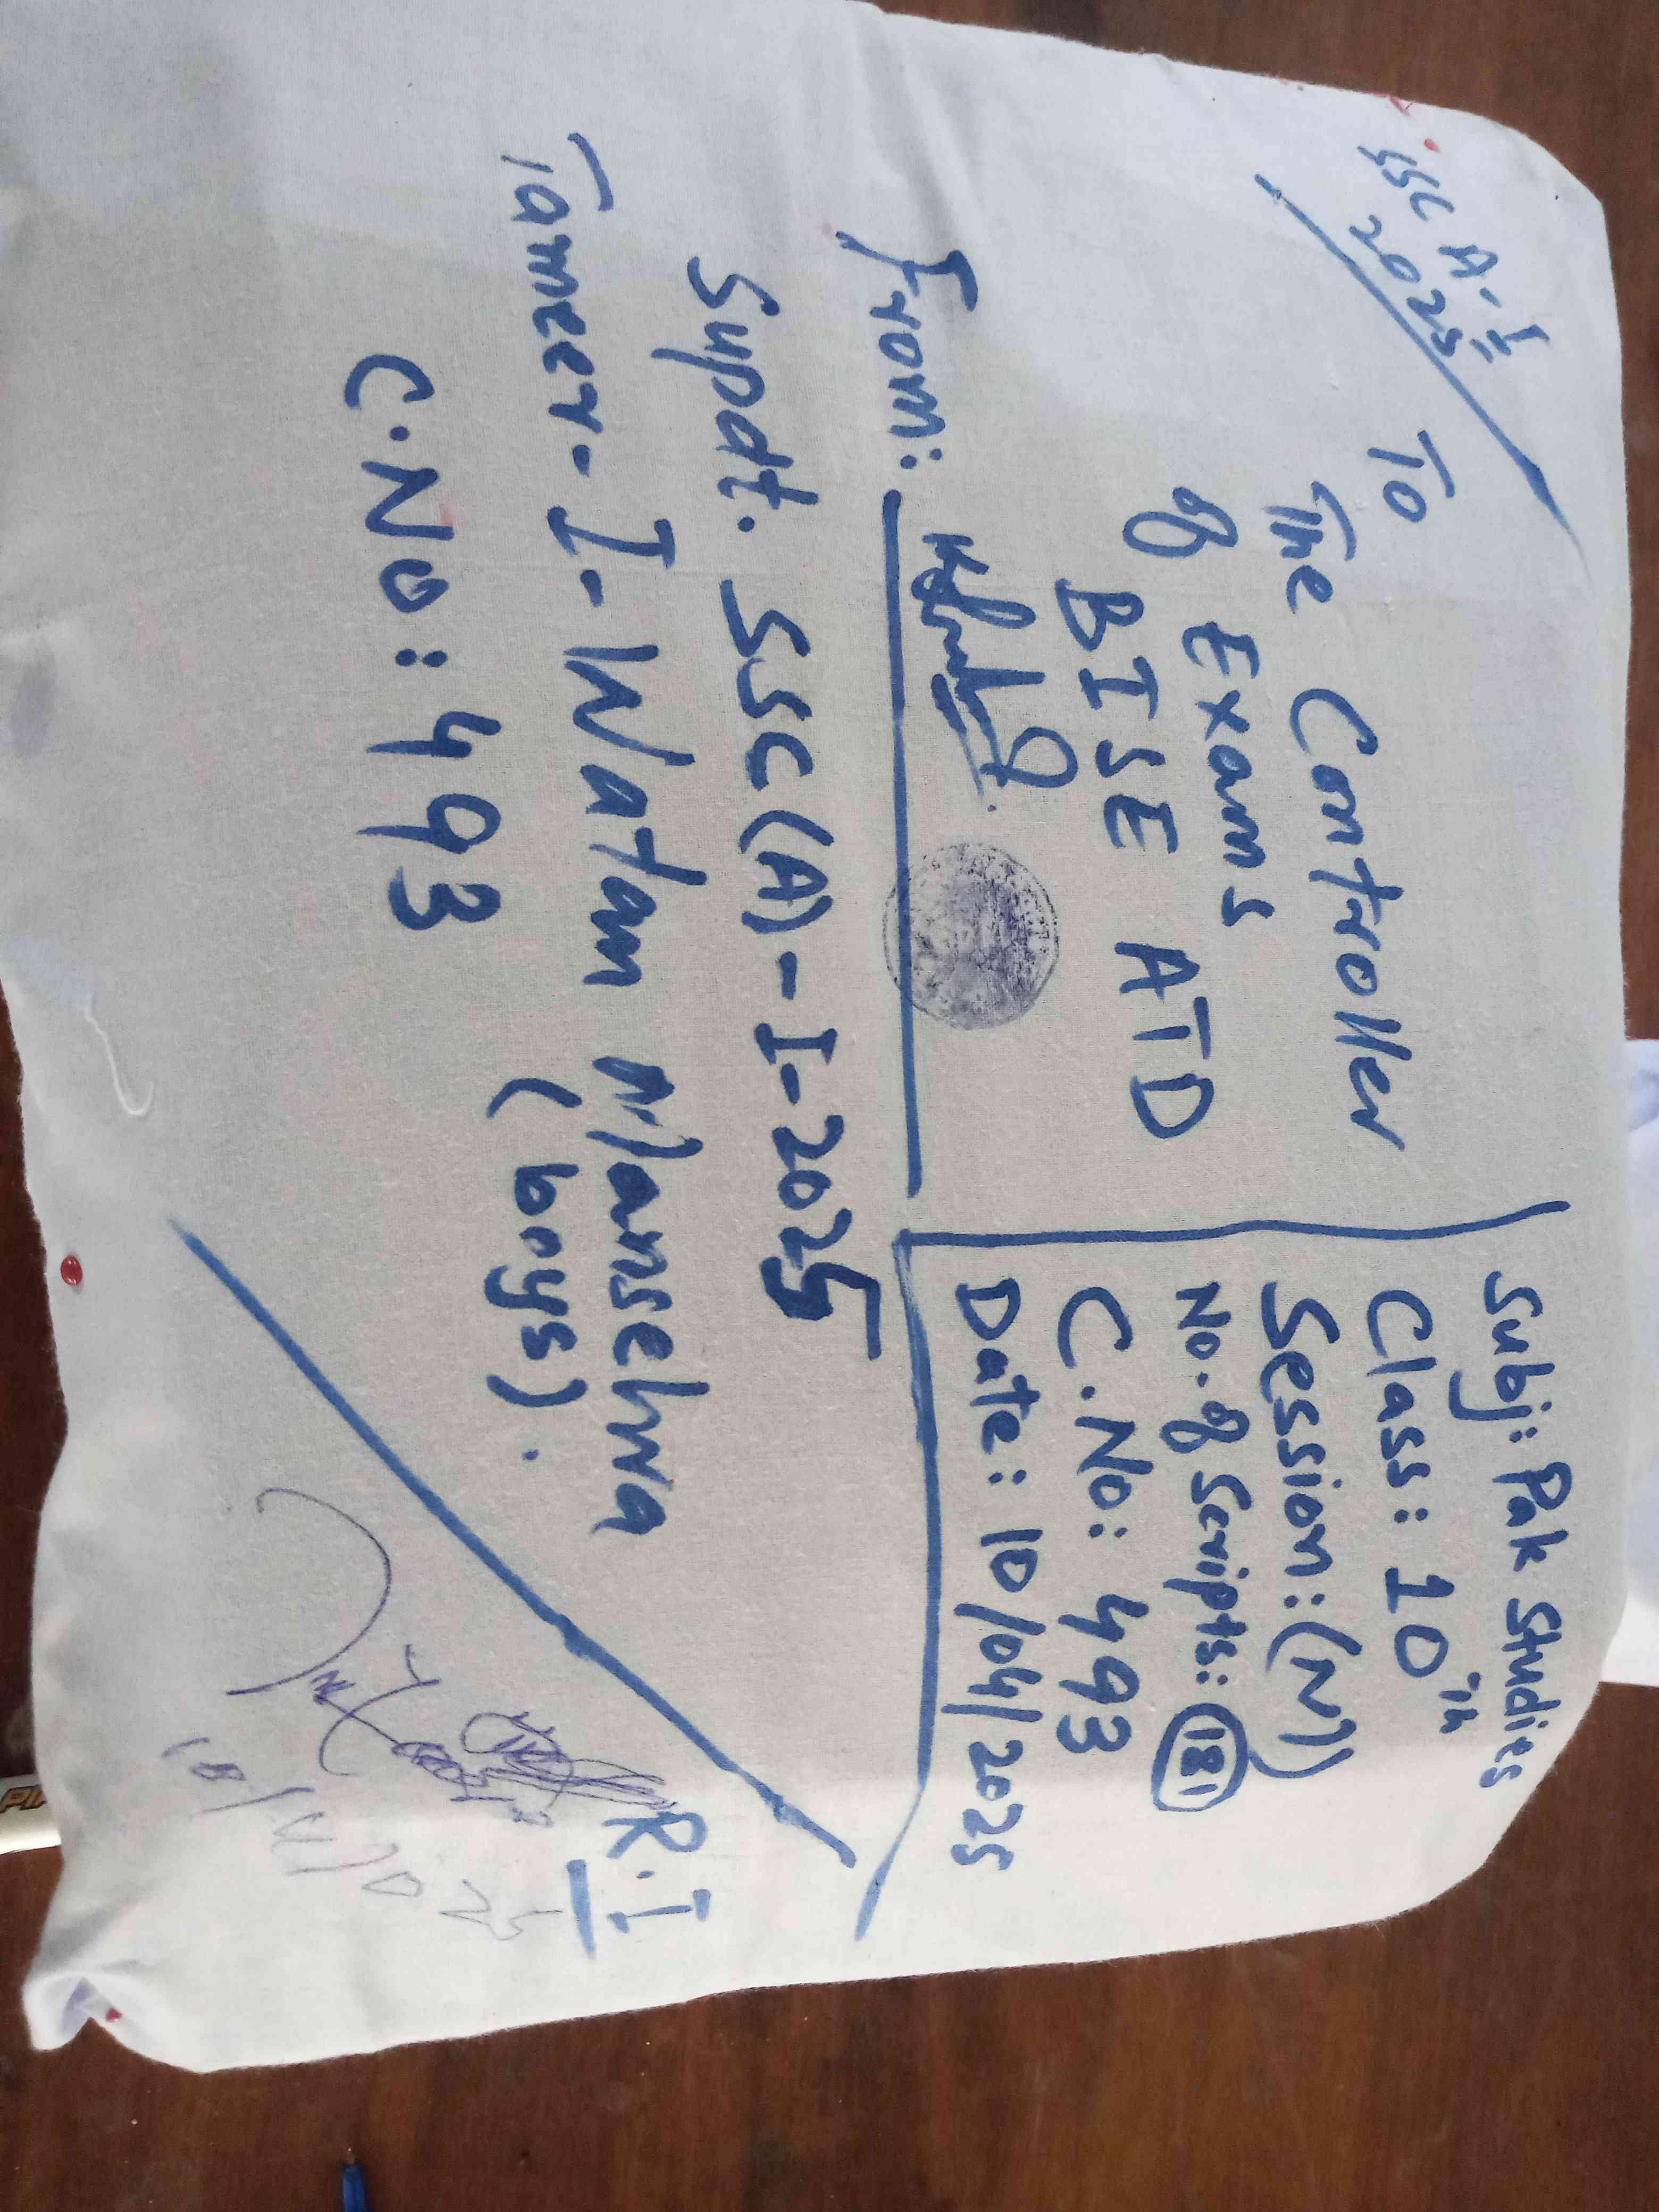 SSC A-I
2025
To
The Controller
of Exams
BISE ATD
Subj: Pak Studies
Class: 10th
Session: (M)
No. of Scripts: (181)
C.No: 493
Date: 10/04/2025
From:
Supdt. SSC(A)-I-2025
Tameer-I-Watan Mansehra
(boys).
C.No: 493
R.I